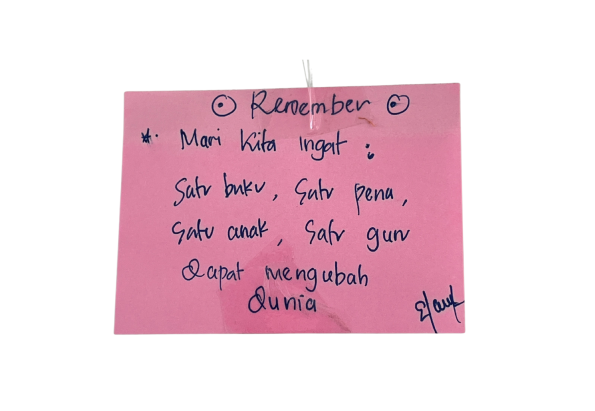 Remember
*. Mari Kita Ingat :
Satu buku, Satu pena,
Satu anak, Satu guru
Dapat mengubah
Dunia